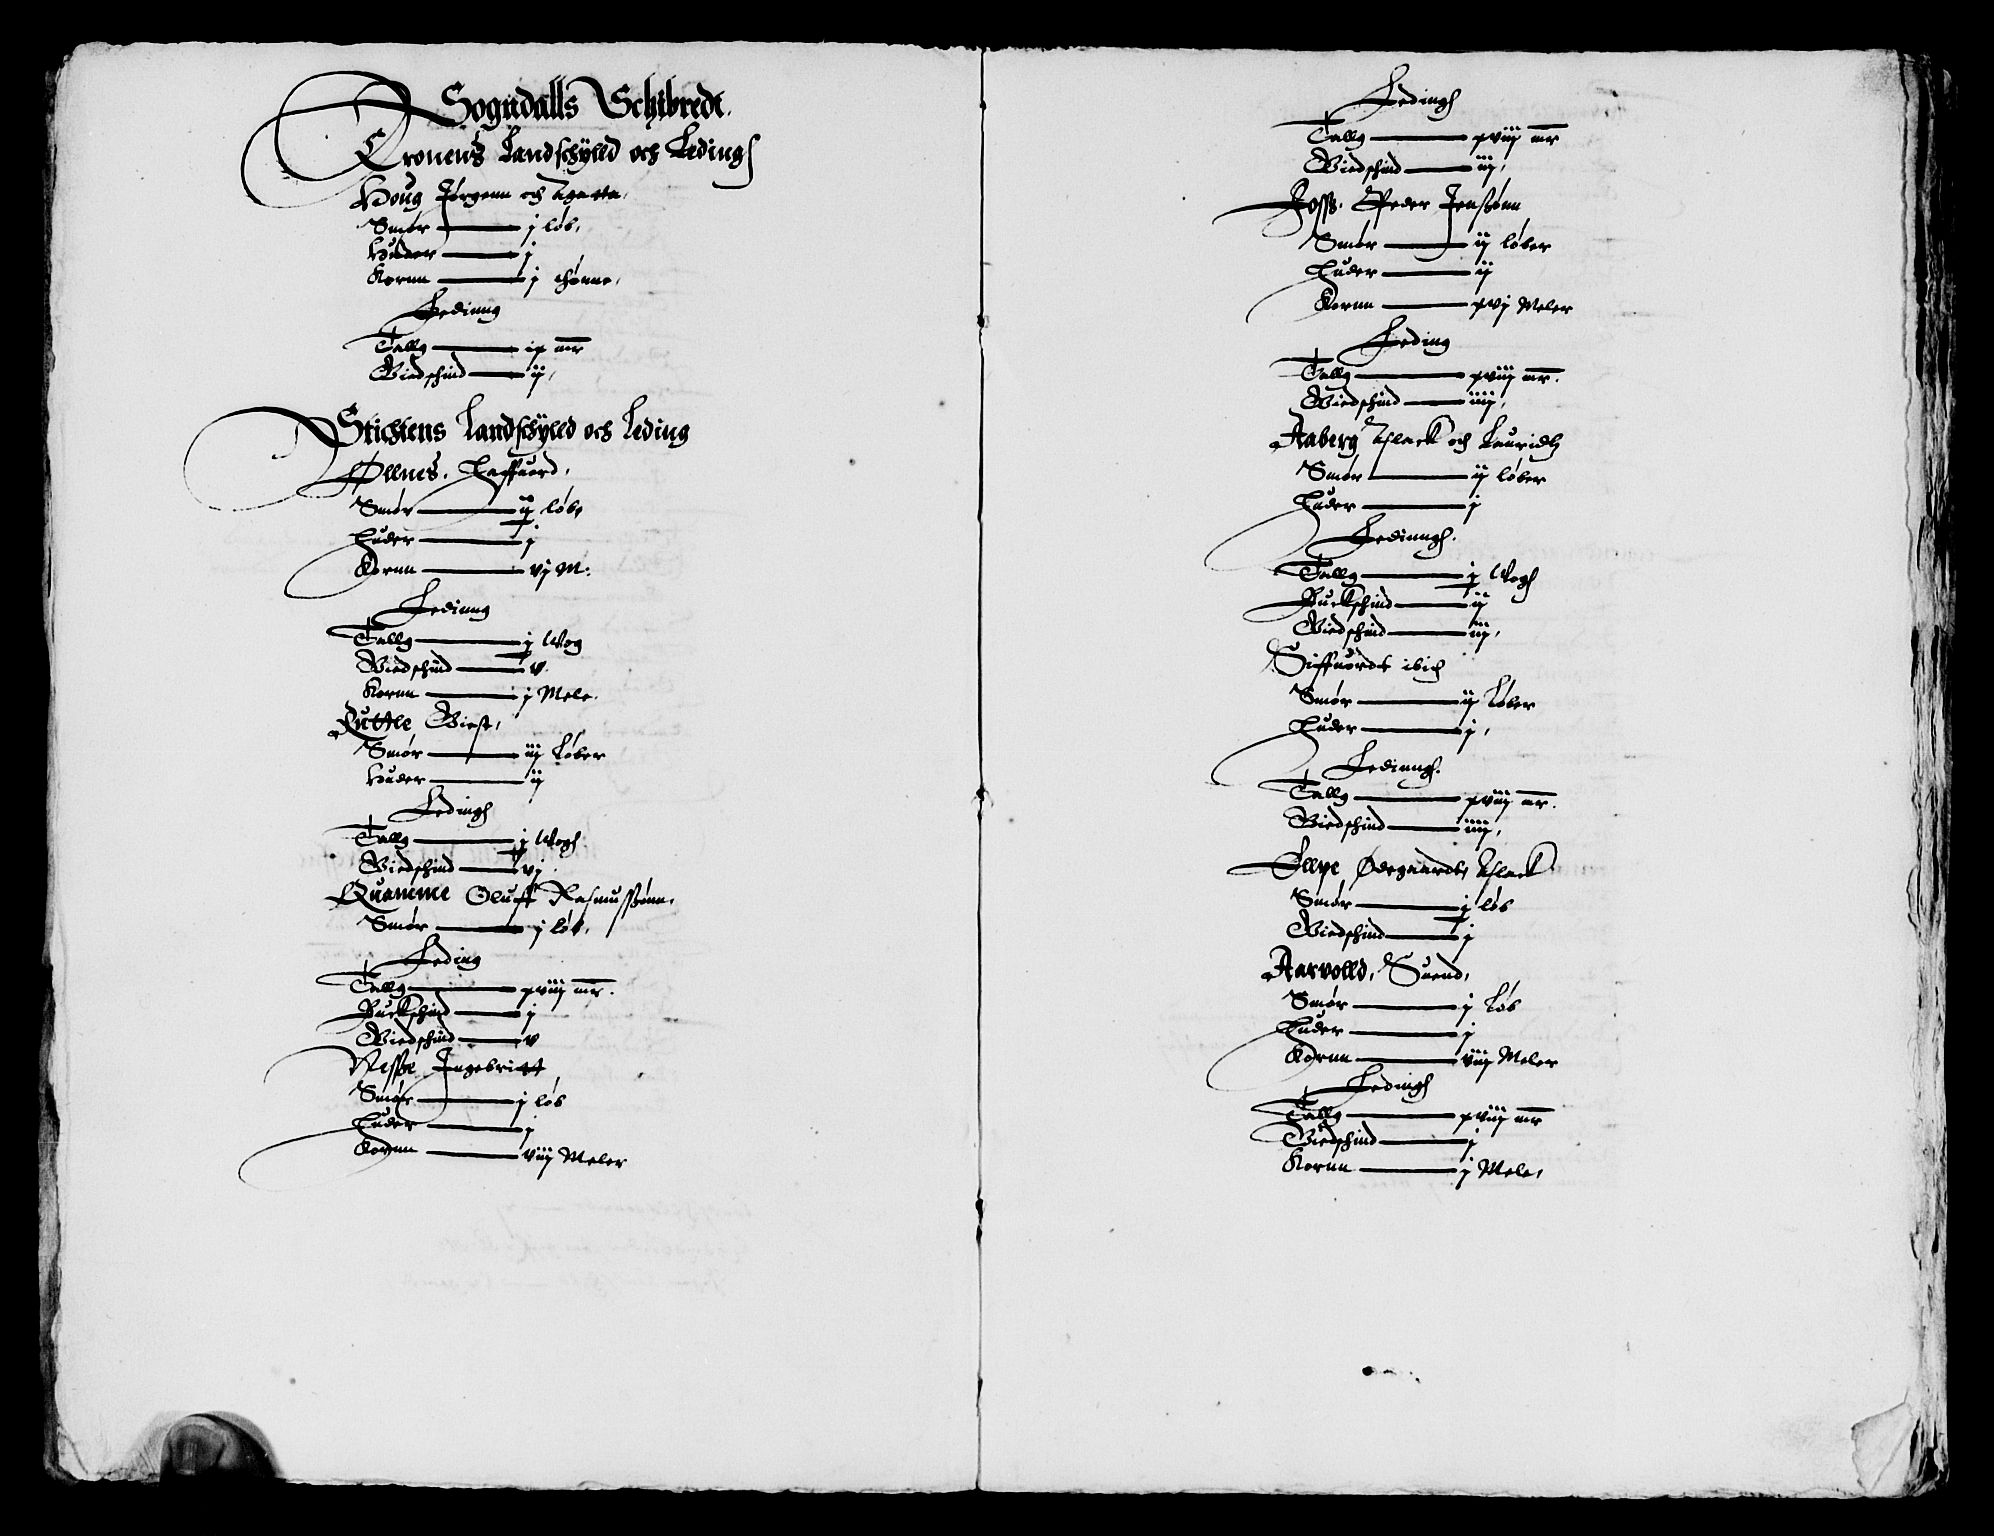 Sogndalls Schibredt.
Cronens Landschylld och Leding
Houg Jørgenn och Agatta,
Smør — j løb,
Huder — j
Kornn — j thønne,
Ledinng
Tallg — ix mr
Giedschind — ij,
Stichtens Landschylld och Leding
Ølnes. Haffuord,
Smør — ij løb,
Huder — j
Kornn — vj M:
Ledinng
Tallg — j Wog
Giedschind — v
Kornn — j Mele.
Quttle Giest,
Smør — iij Løber
Huder — ij
Leding
Tallg — j Wog
Giedschind — vj
Quamme Oluff Rasmussønn,
Smør — j løb,
Leding
Tallg — xviij mr.
Buckschind — j
Giedschind — v
Nesse Ingebritt
Smør — j løb
Huder — j
Kornn — viij Meler
Leding
Tallg — xviij mr
Giedschind — iij,
Foss. Peder Jenssønn
Smør — ij løber
Huder — ij
Kornn — xvj Meler
Leding
Tallg — xviij mr.
Giedschind — iiij,
Aaberg Aslack och Lauridtz
Smør — ij løber
Huder — j
Ledinng.
Tallg — j Wog
Buckschind — ij
Giedschind — iij,
Siffuordt ibid
Smør — ij Løber
Huder — j,
Ledinng.
Tallg — xviij mr.
Giedschind — iiij,
Ødegaardt, Aslack
Smør — j løb
Giedschind — j
Aarvolld, Suend,
Smør — j Løb
Huder — j
Kornn — viij Meler
Leding
Tallg — xviij mr
Giedschind — j
Kornn — j Mele,